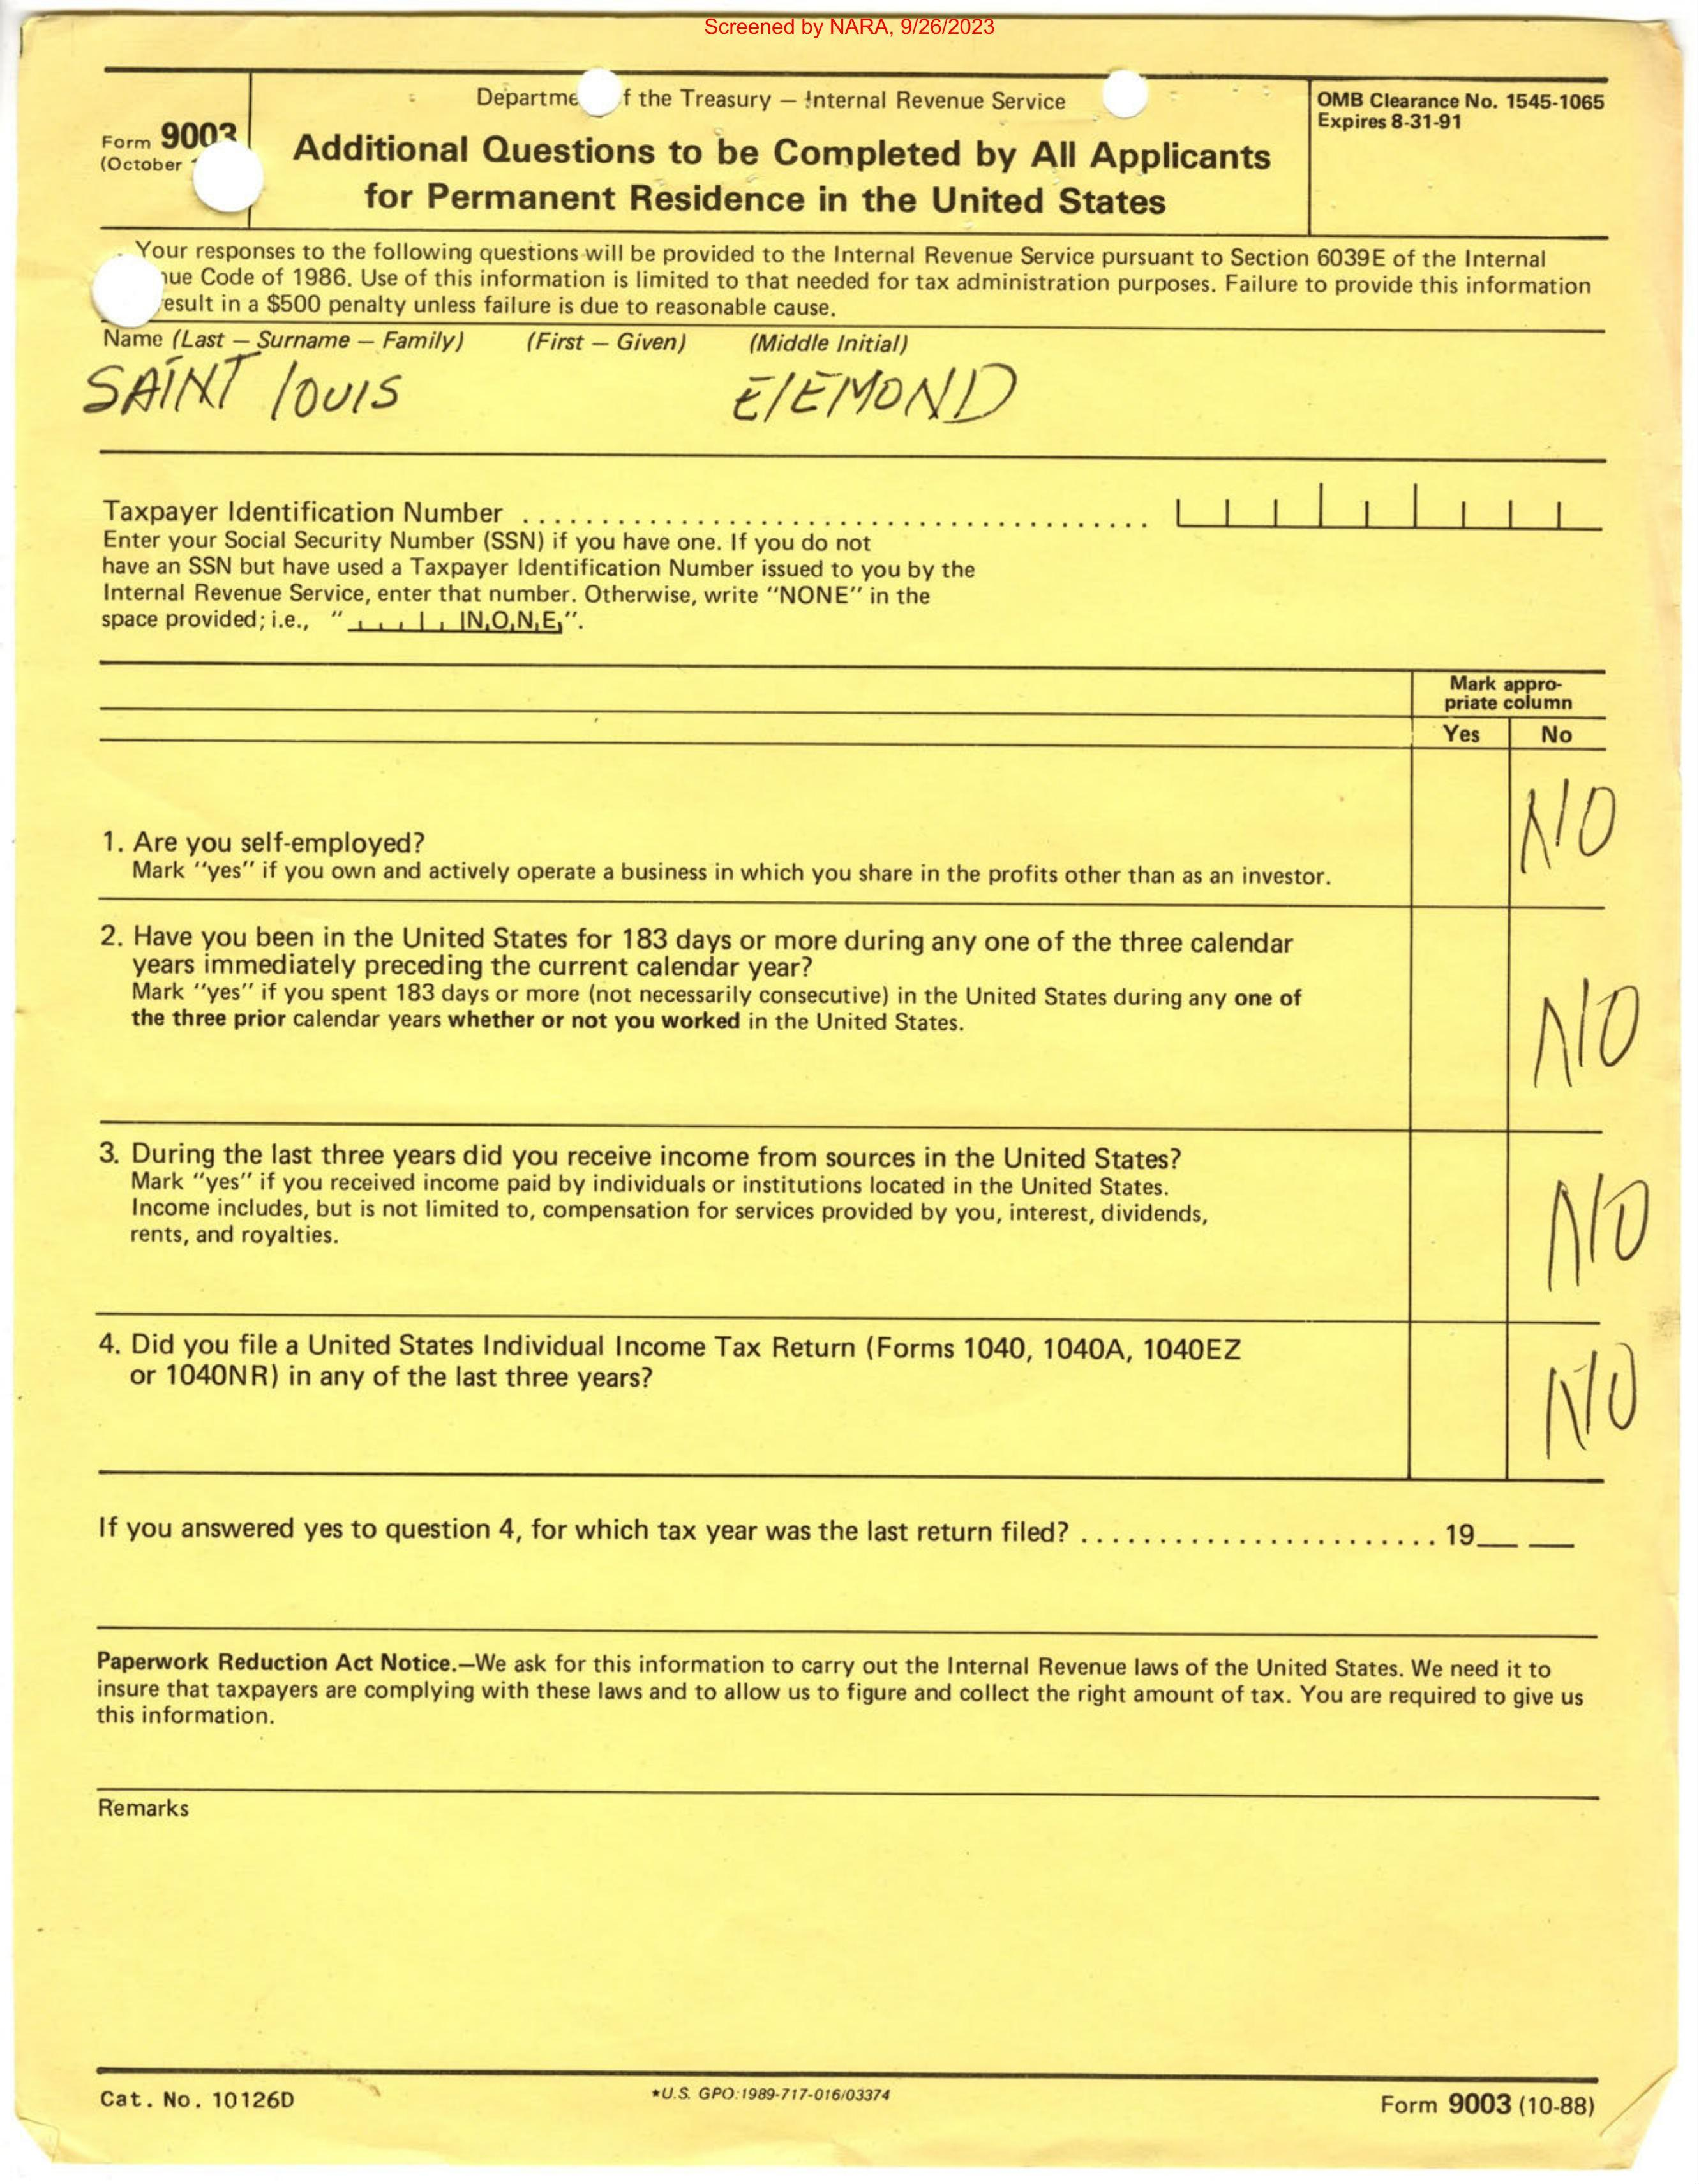 Screened by NARA, 9/26/2023
Departme f the Treasury — Internal Revenue Service
OMB Clearance No. 1545-1065
Expires 8-31-91
Form 9003
(October
Additional Questions to be Completed by All Applicants
for Permanent Residence in the United States
Your responses to the following questions will be provided to the Internal Revenue Service pursuant to Section 6039E of the Internal
nue Code of 1986. Use of this information is limited to that needed for tax administration purposes. Failure to provide this information
esult in a $500 penalty unless failure is due to reasonable cause.
Name (Last — Surname — Family) (First — Given) (Middle Initial)
SAINT lOUIS ElEMOND
Taxpayer Identification Number ........................................
Enter your Social Security Number (SSN) if you have one. If you do not
have an SSN but have used a Taxpayer Identification Number issued to you by the
Internal Revenue Service, enter that number. Otherwise, write "NONE" in the
space provided; i.e., " N,O,N,E,".
Mark appro-
priate column
Yes No
1. Are you self-employed?
Mark "yes" if you own and actively operate a business in which you share in the profits other than as an investor.
NO
2. Have you been in the United States for 183 days or more during any one of the three calendar
years immediately preceding the current calendar year?
Mark "yes" if you spent 183 days or more (not necessarily consecutive) in the United States during any one of
the three prior calendar years whether or not you worked in the United States.
NO
3. During the last three years did you receive income from sources in the United States?
Mark "yes" if you received income paid by individuals or institutions located in the United States.
Income includes, but is not limited to, compensation for services provided by you, interest, dividends,
rents, and royalties.
NO
4. Did you file a United States Individual Income Tax Return (Forms 1040, 1040A, 1040EZ
or 1040NR) in any of the last three years?
NO
If you answered yes to question 4, for which tax year was the last return filed? ....................... 19__ __
Paperwork Reduction Act Notice.—We ask for this information to carry out the Internal Revenue laws of the United States. We need it to
insure that taxpayers are complying with these laws and to allow us to figure and collect the right amount of tax. You are required to give us
this information.
Remarks
Cat. No. 10126D
★U.S. GPO:1989-717-016/03374
Form 9003 (10-88)